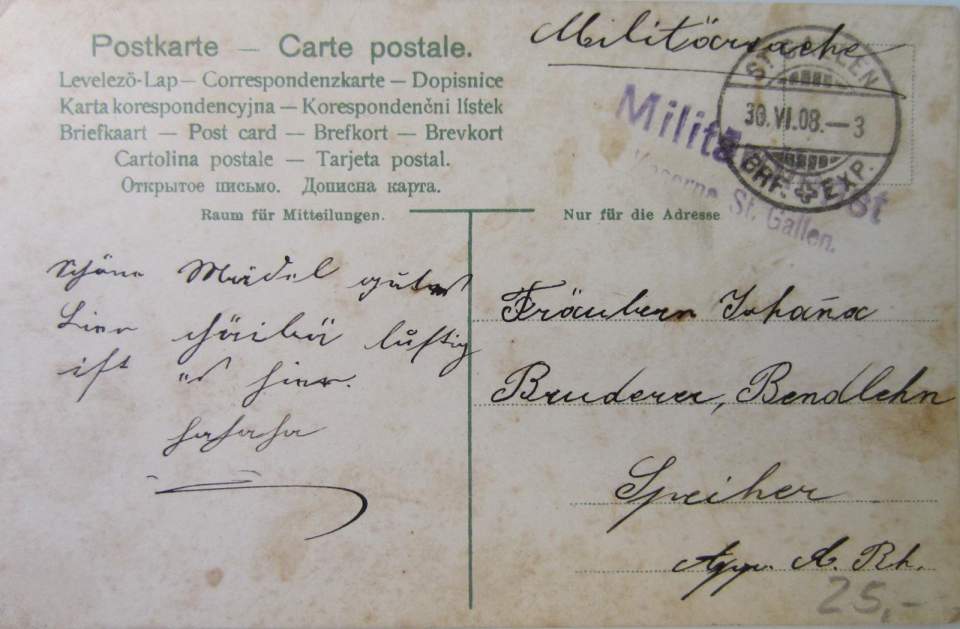 Militärsache
Postkarte — Carte postale.
Levelező-Lap — Correspondenzkarte — Dopisnice
Karta korespondencyjna — Korespondenčni listek
Briefkaart — Post card — Brefkort — Brevkort
Cartolina postale — Tarjeta postal.
Открытое письмо. Дописна карта.
Raum für Mitteilungen.
Nur für die Adresse
ST. GALLEN
30.VI.08.—3
BRF. EXP.
Militärpost
Kaserne St. Gallen.
schöne Mädel
chäibä luftig
ist es hier.
hahaha
Fräulern Johaña
Bruderer, Bendlehn
Speiher
App. A. Rh.
25,-